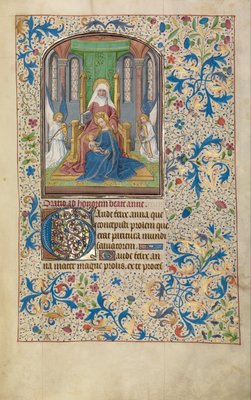 Oratio ad honorem beate anne.
Gaude felix anna que
concepisti prolem que
erat paritura mundi
saluatorem. Gaude felix an
na mater magne prolis. ex te proce